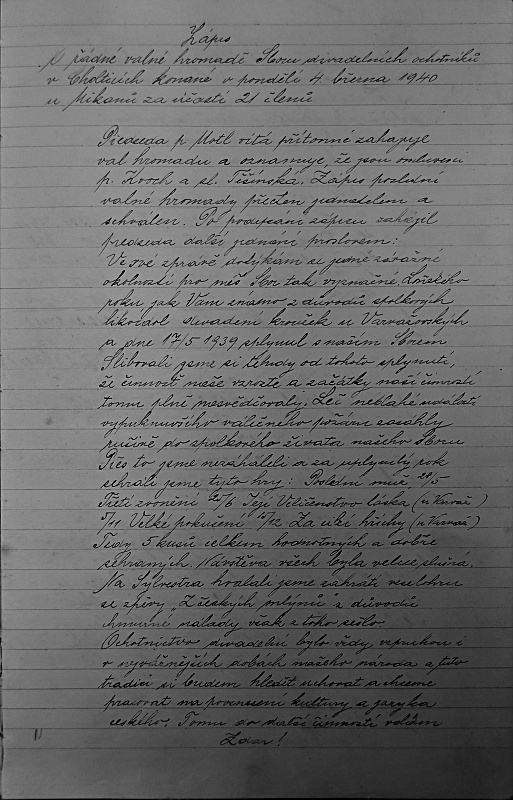 Zápis
O řádné valné hromadě Sboru divadelních ochotníků
v Cholticích konané v pondělí 4. března 1940
u Mikanů za účasti 21 členů
Předseda p. Motl vítá přítomné zahajuje
val. hromadu a oznamuje, že jsou omluveni
p. Kroch a sl. Tišínská. Zápis poslední
valné hromady přečten jednatelem a
schválen. Po podepsání zápisu zahájil
předseda další jednání proslovem:
Ve své zprávě dotýkám se jedné závažné
okolnosti pro náš Sbor tak význačné. Loňského
roku jak Vám známo z důvodů spolkových
likvidoval divadelní kroužek u Varvažovských
a dne 17/5 1939 splynul s naším Sborem
Slibovali jsme si tehdy od tohoto splynutí,
že činnost naše vzroste a začátky naší činnosti
tomu plně nasvědčovaly. Leč neblahé události
vypuknuvšího válečného požáru zasáhly
rušivě do spolkového života našeho Sboru
Přes to jsme nezaháleli a za uplynulý rok
sehráli jsme tyto hry: Poslední muž 28/5
Třetí zvonění 24/6 Její Veličenstvo láska (u Kovář)
5/11 Velké pokušení 12 Za cizí hříchy (u Kovář)
Tedy 5 kusů celkem hodnotných a dobře
sehraných. Návštěva všech byla velice slušná.
Na Sylvestra hodlali jsme zahráti veselohru
se zpěvy „Z českých mlýnů" z důvodů
chmurné nálady však z toho sešlo.
Ochotnictvo divadelní bylo vždy vzpruhou i
v nejvážnějších dobách našeho národa a tuto
tradici si budem hledět uchovat a chceme
pracovat na povznesení kultury a jazyka
českého. Tomu do další činnosti volám
Zdar!